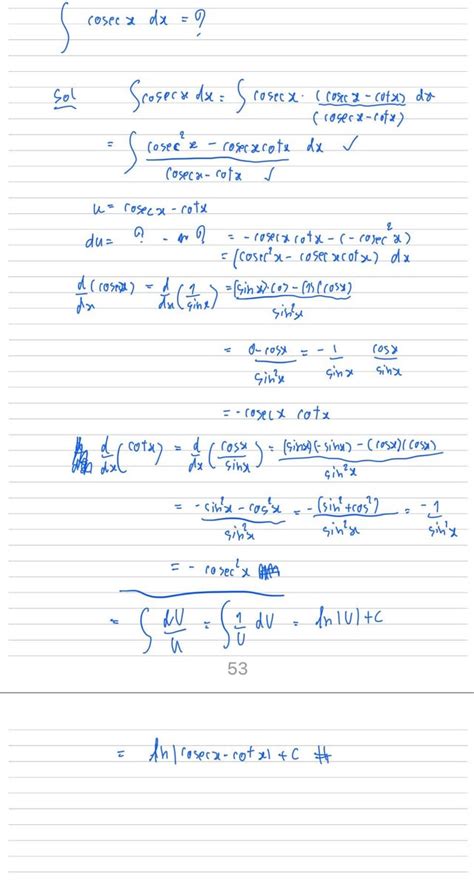 ∫ cosec x dx = ?
Sol ∫ cosec x dx = ∫ cosec x · (cosec x - cot x)/(cosec x - cot x) dx
= ∫ (cosec²x - cosec x cot x)/(cosec x - cot x) dx ✓ ✓
u = cosec x - cot x
du = ? - ? = - cosec x cot x - (- cosec²x)
= (cosec²x - cosec x cot x) dx
d/dx (cosec x) = d/dx (1/sin x) = ((sin x)·(0) - (1)(cos x))/sin²x
= (0 - cos x)/sin²x = - 1/sin x cos x/sin x
= - cosec x cot x
d/dx (cot x) = d/dx (cos x/sin x) = ((sin x)(-sin x) - (cos x)(cos x))/sin²x
= (-sin²x - cos²x)/sin²x = -(sin² + cos²)/sin²x = -1/sin²x
= - cosec²x
= ∫ dU/u = ∫ 1/U dU = ln|U| + C
53
= ln|cosec x - cot x| + C #